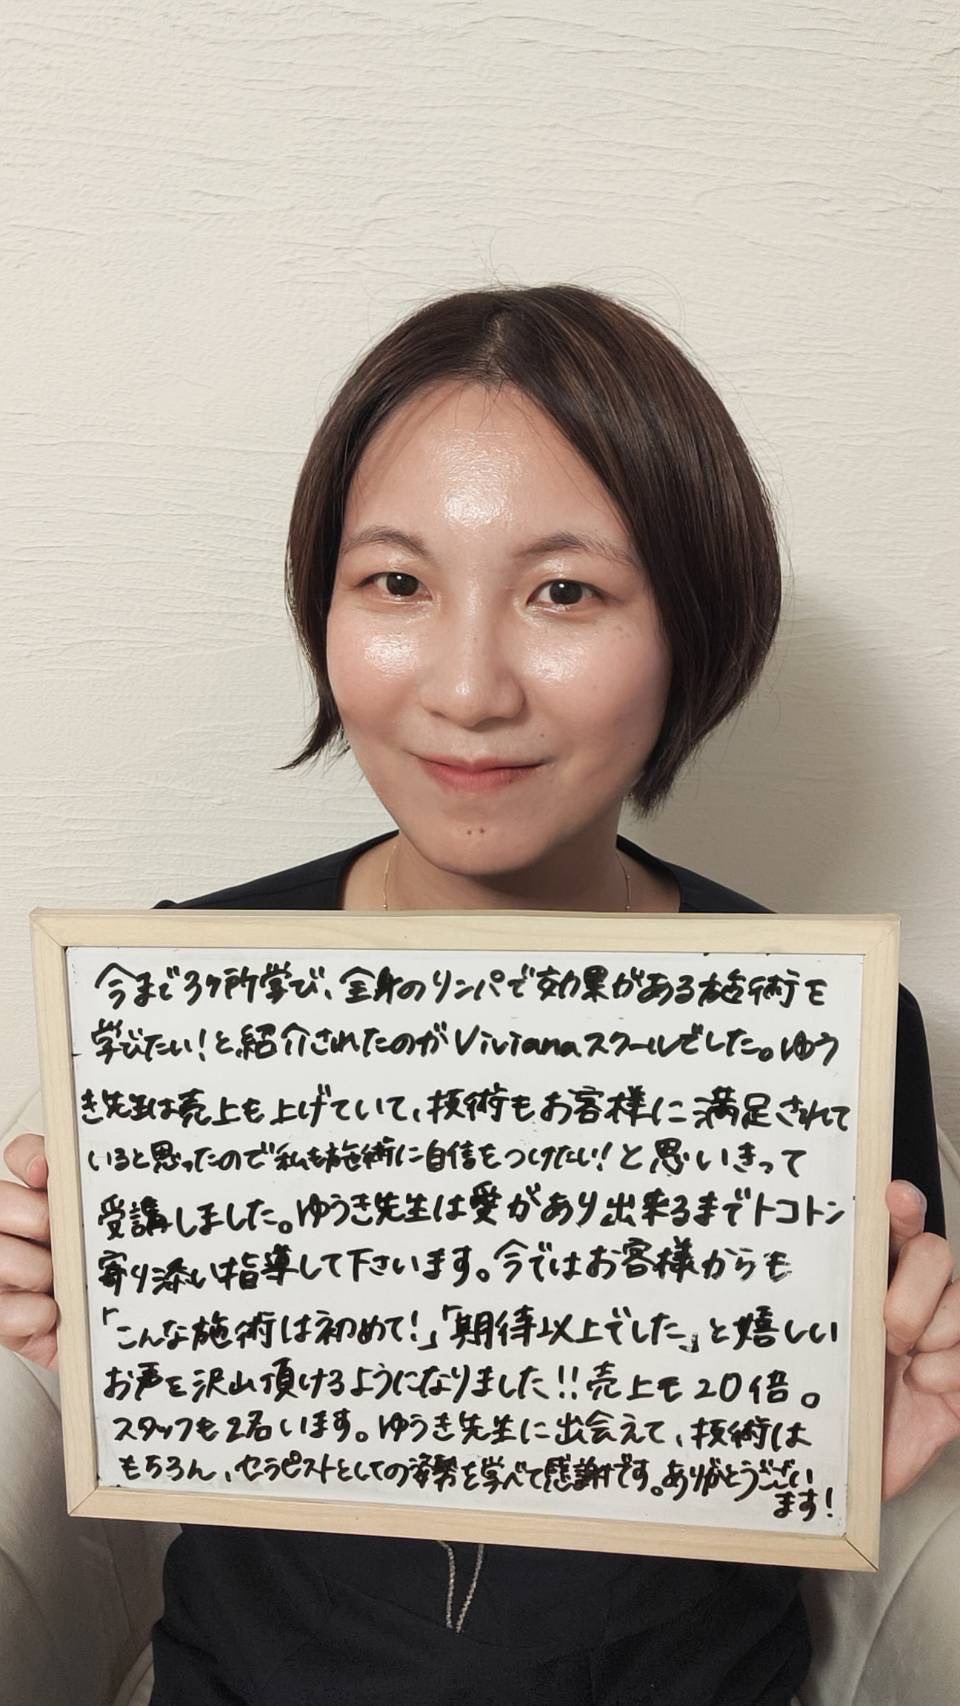 今まで3ヶ所学び、全身のリンパで効果がある施術を
学びたい！と紹介されたのがVivianaスクールでした。ゆう
き先生は売上も上げていて、技術もお客様に満足されて
いると思ったので私も施術に自信をつけたい！と思いきって
受講しました。ゆうき先生は愛があり出来るまでトコトン
寄り添い指導して下さいます。今ではお客様からも
「こんな施術は初めて！」「期待以上でした」と嬉しい
お声を沢山頂けるようになりました!!売上も20倍。
スタッフも2名います。ゆうき先生に出会えて、技術は
もちろん、セラピストとしての姿勢を学べて感謝です。ありがとうござい
ます！